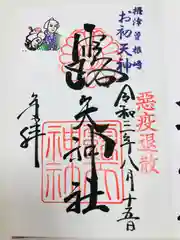 摂津 曽根崎
お初天神
惡疫退散
令和三年八月十五日
露天神社
奉拝